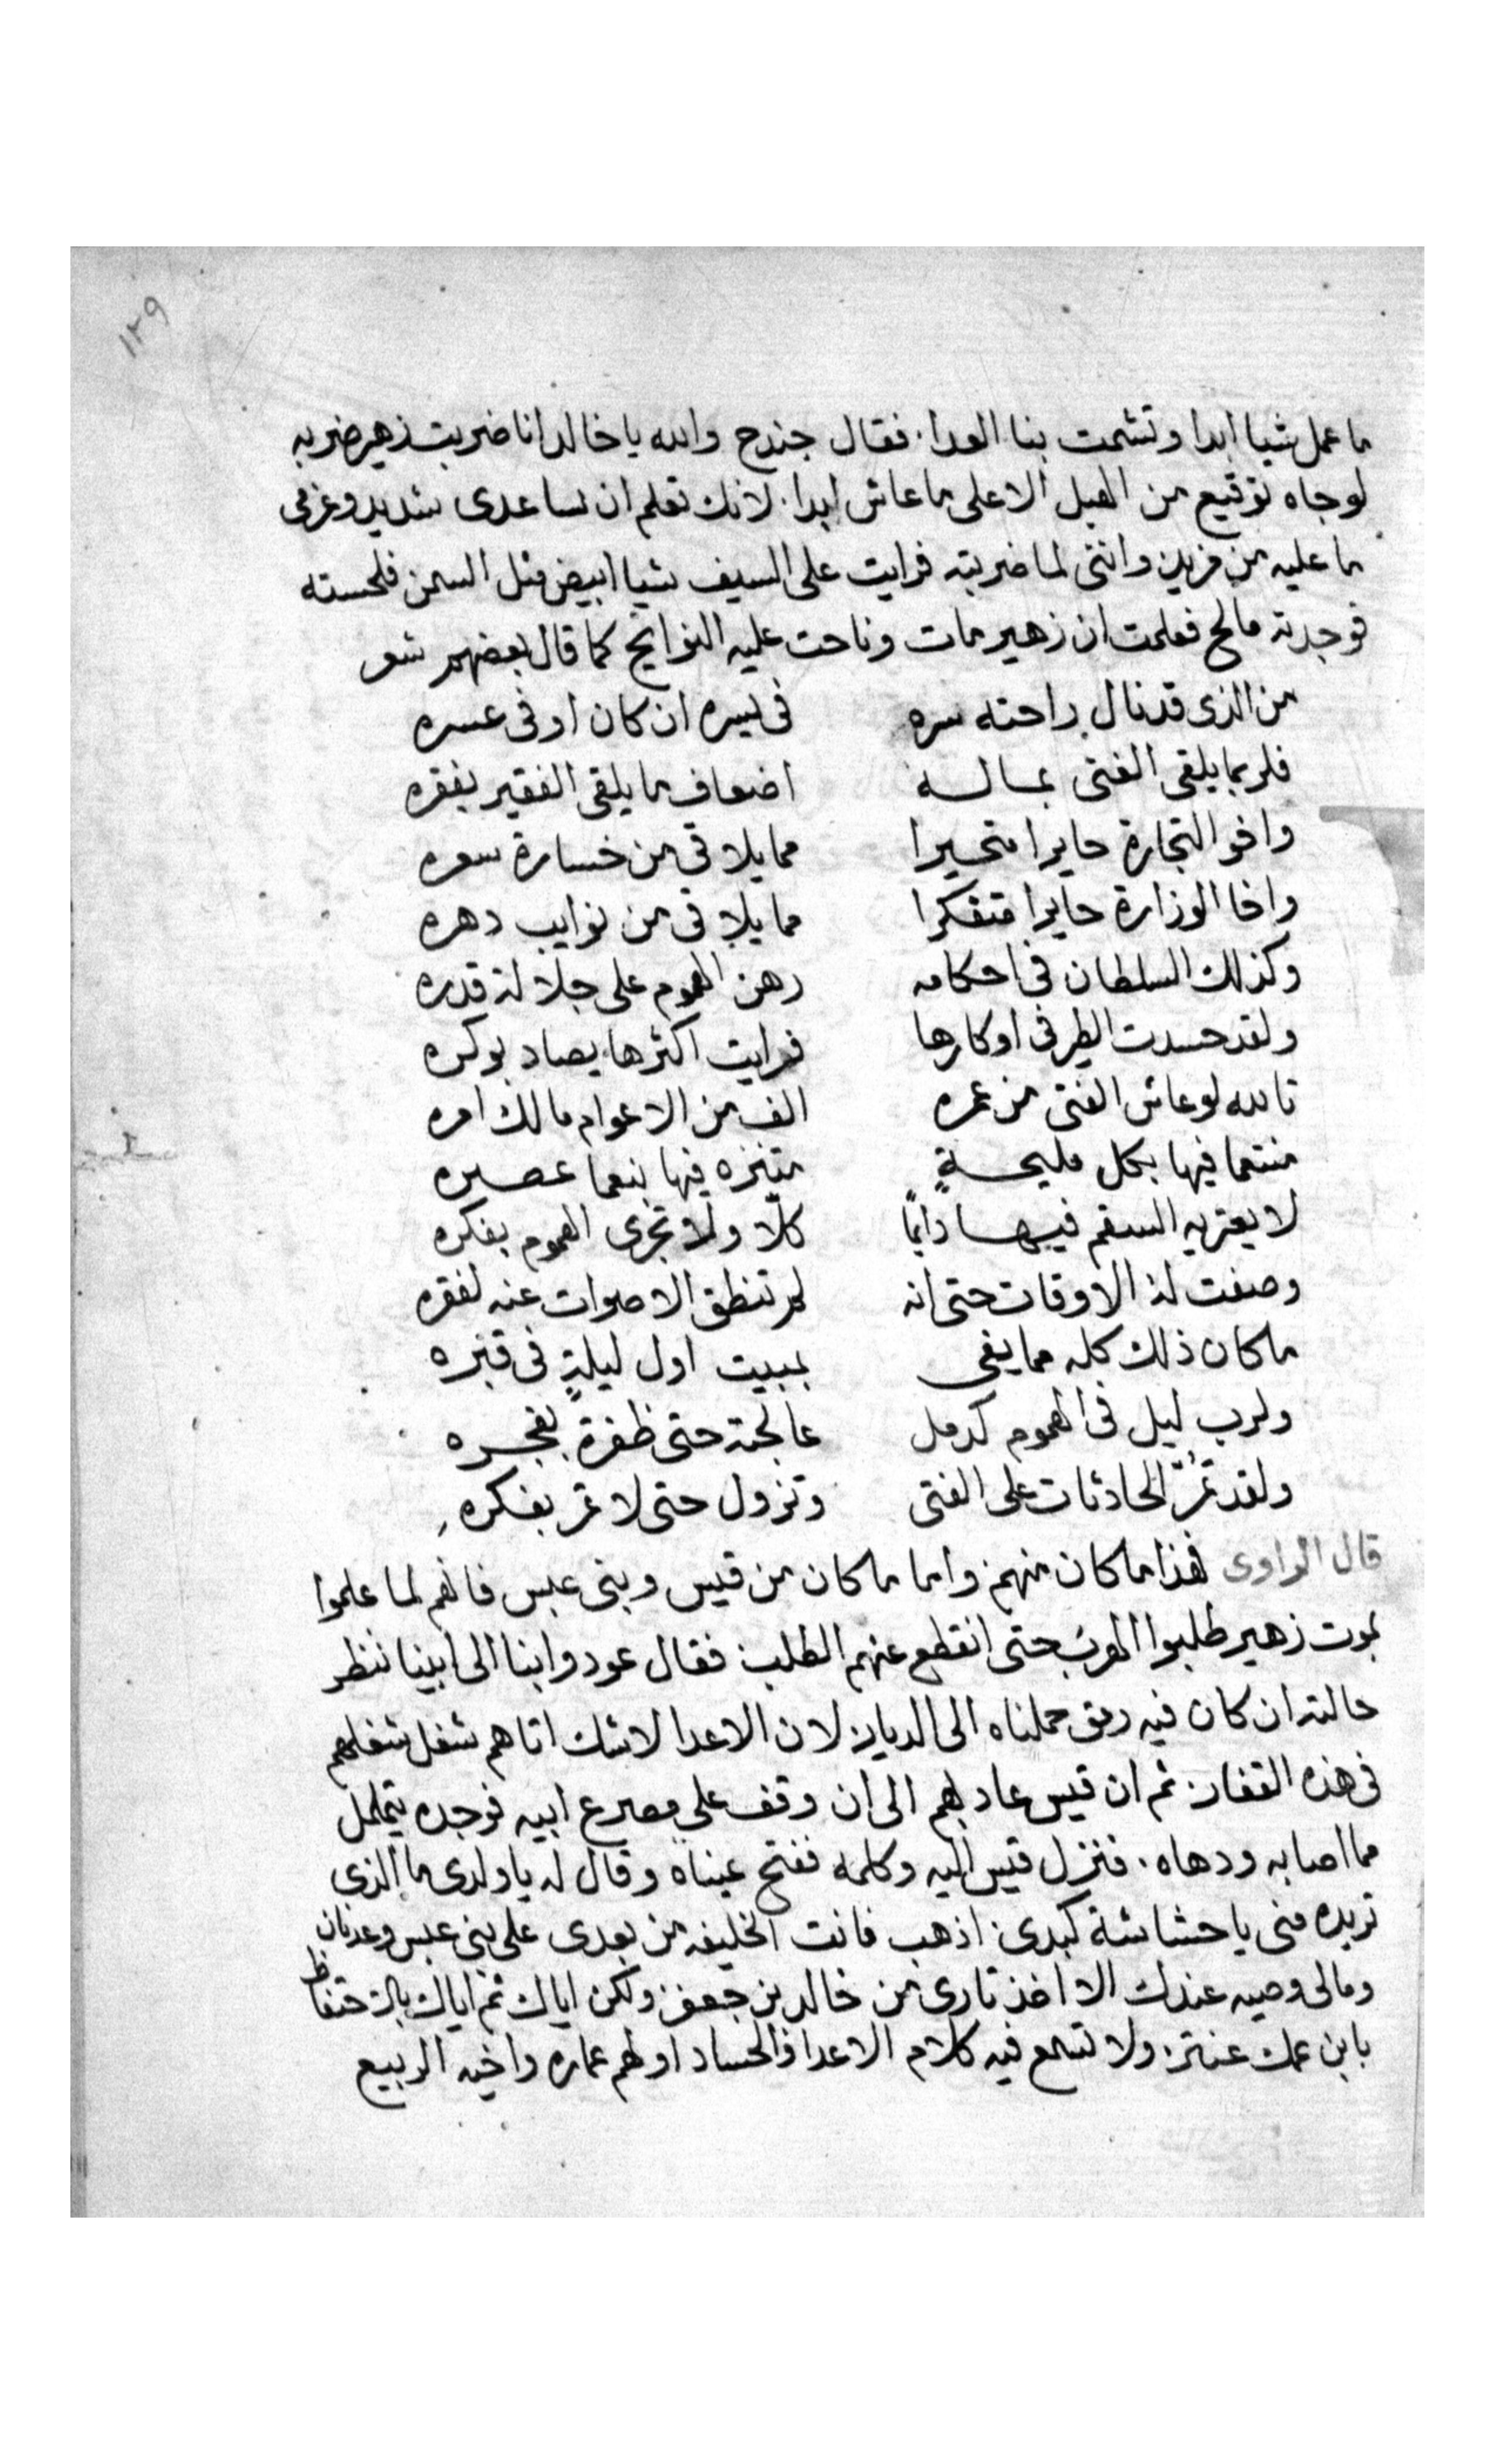 ١٢٩
ما عمل شيا ابدا وتشمت بنا العدا . فقال جندح والله يا خالد انا ضربت زهير ضربه
لو جاه توقيع من الهبل الاعلى ما عاش ابدا . لانك تعلم ان ساعدى شديد وعزمى
ما عليه من مزيد وانني لما ضربته فرايت على السيف شيا ابيض مثل السمن فلحسته
فوجدته مالح فعلمت ان زهير مات وناحت عليه النوايح كما قال بعضهم شعر
من الذى قد نال راحته سره في يسره ان كان او في عسره
فلربما يلقى الغنى بماله اضعاف ما يلقى الفقير بفقره
واخو التجارة حايرا متحيرا مما يلاقي من خسارة سعره
واخا الوزارة حايرا متفكرا مما يلاقي من نوايب دهره
وكذلك السلطان في احكامه رهن الهموم على جلالة قدره
ولقد حسدت الطير في اوكارها فرايت اكثرها يصاد بوكره
تالله لو عاش الفتى من عمره الف من الاعوام مالك امره
منتعما فيها بكل مليحةٍ متنزه فيها بنعما عصره
لا يعتريه السقم فيها دايمًا كلا ولا تجرى الهموم بفكره
وصفت له الاوقات حتى انه لم تنطق الاصوات عنه لفقره
ما كان ذلك كله مما يفى بمبيت اول ليلةٍ في قبره
ولرب ليل في الهموم كدمل عالجته حتى ظفرة بفجره
ولقد تمرّ الحادثات على الفتى وتزول حتى لا تمر بفكره
قال الراوى فهذا ما كان منهم واما ما كان من قيس وبنى عبس فانهم لما علموا
بموت زهير طلبوا الهرب حتى انقطع عنهم الطلب فقال عودوا بنا الى ابينا ننظر
حالته ان كان فيه رمق حملناه الى الديار لان الاعدا لا شك اتاهم شغل شغلهم
في هذه القفار ثم ان قيس عاد بهم الى ان وقف على مصرع ابيه فوجده يتململ
مما اصابه ودهاه . فنزل قيس اليه وكلمه ففتح عيناه وقال له يا ولدى ما الذى
تريده منى يا حشاشة كبدى اذهب فانت الخليفه من بعدى على بنى عبس وعدنان
ومالى وصيه عندك الا اخذ تارى من خالد بن جعفر ولكن اياك ثم اياك بالاحتفاظ
بابن عمك عنتر ولا تسمع فيه كلام الاعدا والحساد اولهم عماره واخيه الربيع